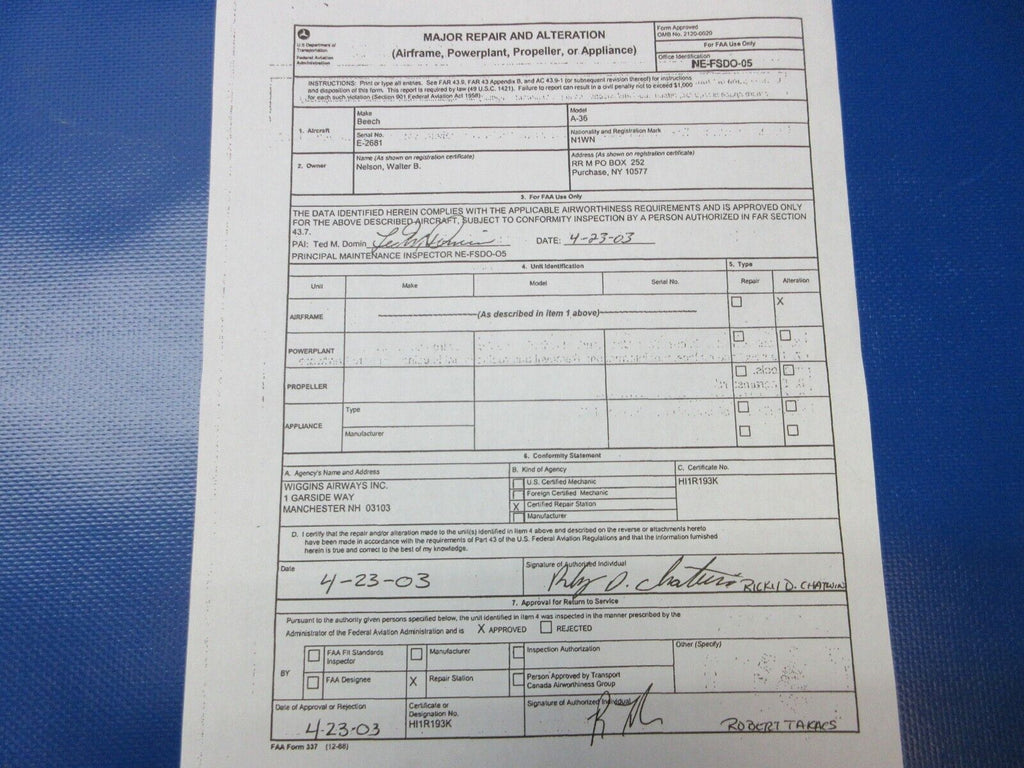 MAJOR REPAIR AND ALTERATION
(Airframe, Powerplant, Propeller, or Appliance)
U.S Department of
Transportation
Federal Aviation
Administration
Form Approved
OMB No. 2120-0020
For FAA Use Only
Office Identification
NE-FSDO-05
INSTRUCTIONS: Print or type all entries. See FAR 43.9, FAR 43 Appendix B, and AC 43.9-1 (or subsequent revision thereof) for instructions
and disposition of this form. This report is required by law (49 U.S.C. 1421). Failure to report can result in a civil penalty not to exceed $1,000
for each such violation (Section 901 Federal Aviation Act 1958).
1. Aircraft
Make
Beech
Model
A-36
Serial No.
E-2681
Nationality and Registration Mark
N1WN
2. Owner
Name (As shown on registration certificate)
Nelson, Walter B.
Address (As shown on registration certificate)
RR M PO BOX 252
Purchase, NY 10577
3. For FAA Use Only
THE DATA IDENTIFIED HEREIN COMPLIES WITH THE APPLICABLE AIRWORTHINESS REQUIREMENTS AND IS APPROVED ONLY
FOR THE ABOVE DESCRIBED AIRCRAFT, SUBJECT TO CONFORMITY INSPECTION BY A PERSON AUTHORIZED IN FAR SECTION
43.7.
PAI: Ted M. Domin Ted M Domin DATE: 4-23-03
PRINCIPAL MAINTENANCE INSPECTOR NE-FSDO-05
4. Unit Identification
5. Type
Unit Make Model Serial No. Repair Alteration
AIRFRAME (As described in item 1 above) X
POWERPLANT
PROPELLER
APPLIANCE
Type
Manufacturer
6. Conformity Statement
A. Agency's Name and Address
WIGGINS AIRWAYS INC.
1 GARSIDE WAY
MANCHESTER NH 03103
B. Kind of Agency
U.S. Certified Mechanic
Foreign Certified Mechanic
X Certified Repair Station
Manufacturer
C. Certificate No.
HI1R193K
D. I certify that the repair and/or alteration made to the unit(s) identified in item 4 above and described on the reverse or attachments hereto
have been made in accordance with the requirements of Part 43 of the U.S. Federal Aviation Regulations and that the information furnished
herein is true and correct to the best of my knowledge.
Date
4-23-03
Signature of Authorized Individual
Ricky D. Chatwin RICKY D. CHATWIN
7. Approval for Return to Service
Pursuant to the authority given persons specified below, the unit identified in item 4 was inspected in the manner prescribed by the
Administrator of the Federal Aviation Administration and is X APPROVED REJECTED
BY
FAA Flt Standards
Inspector
Manufacturer
Inspection Authorization
Other (Specify)
FAA Designee
X Repair Station
Person Approved by Transport
Canada Airworthiness Group
Date of Approval or Rejection
4-23-03
Certificate or
Designation No.
HI1R193K
Signature of Authorized Individual
ROBERT TAKACS
FAA Form 337 (12-88)